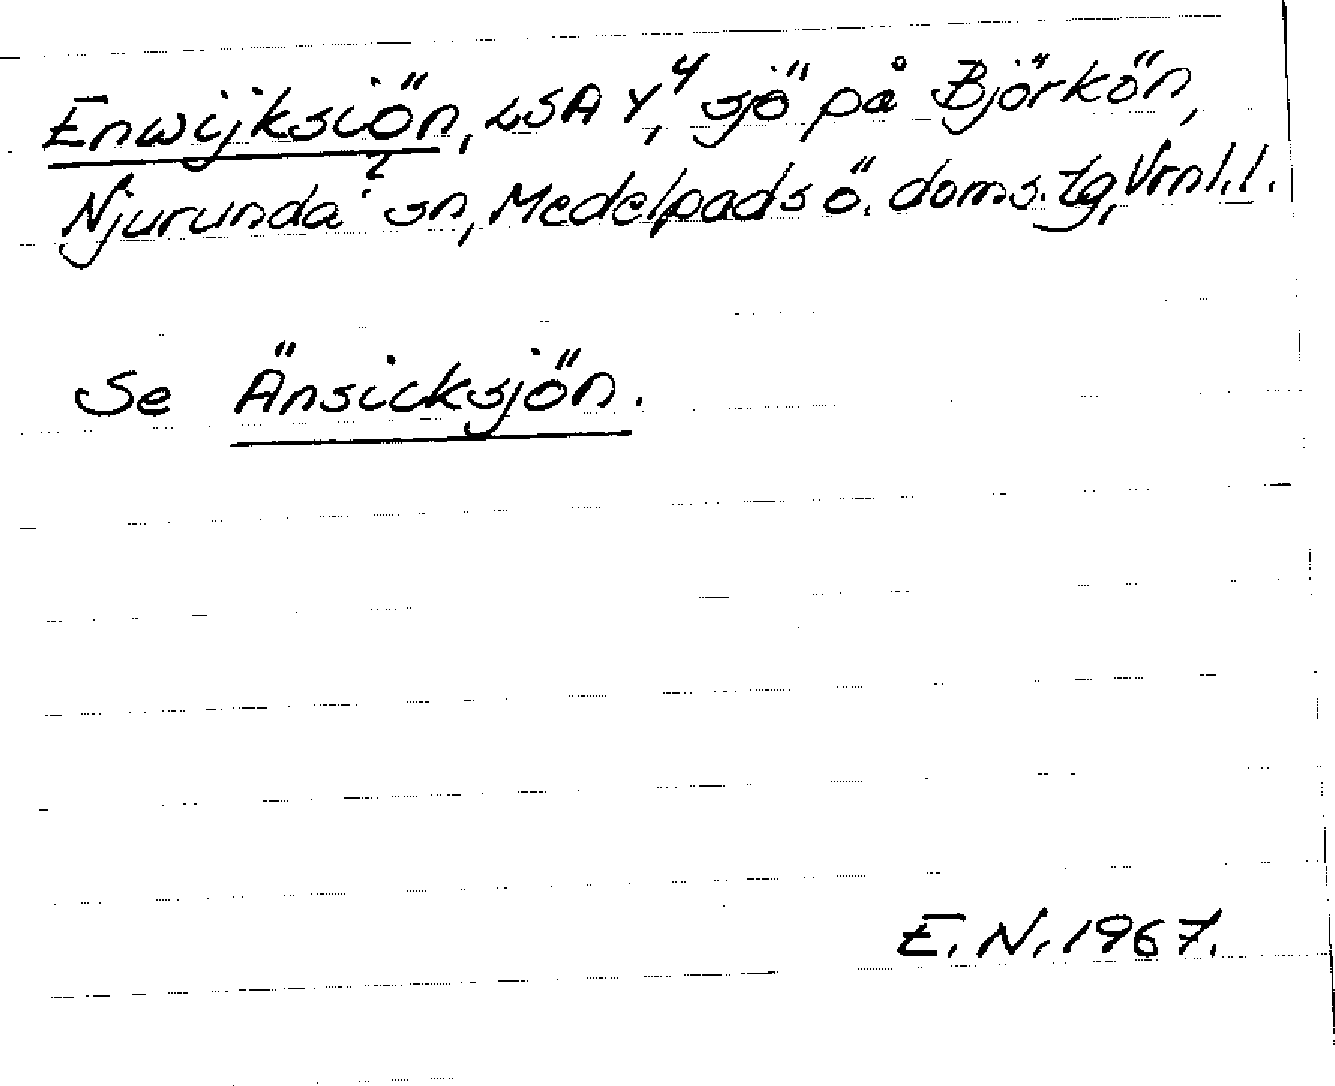 Enwijksiön, LSA Y⁴, sjö på Björkön,
Njurunda? sn, Medelpads ö. doms. tg, Vrnl.l.
Se Änsicksjön.
E.N. 1967.